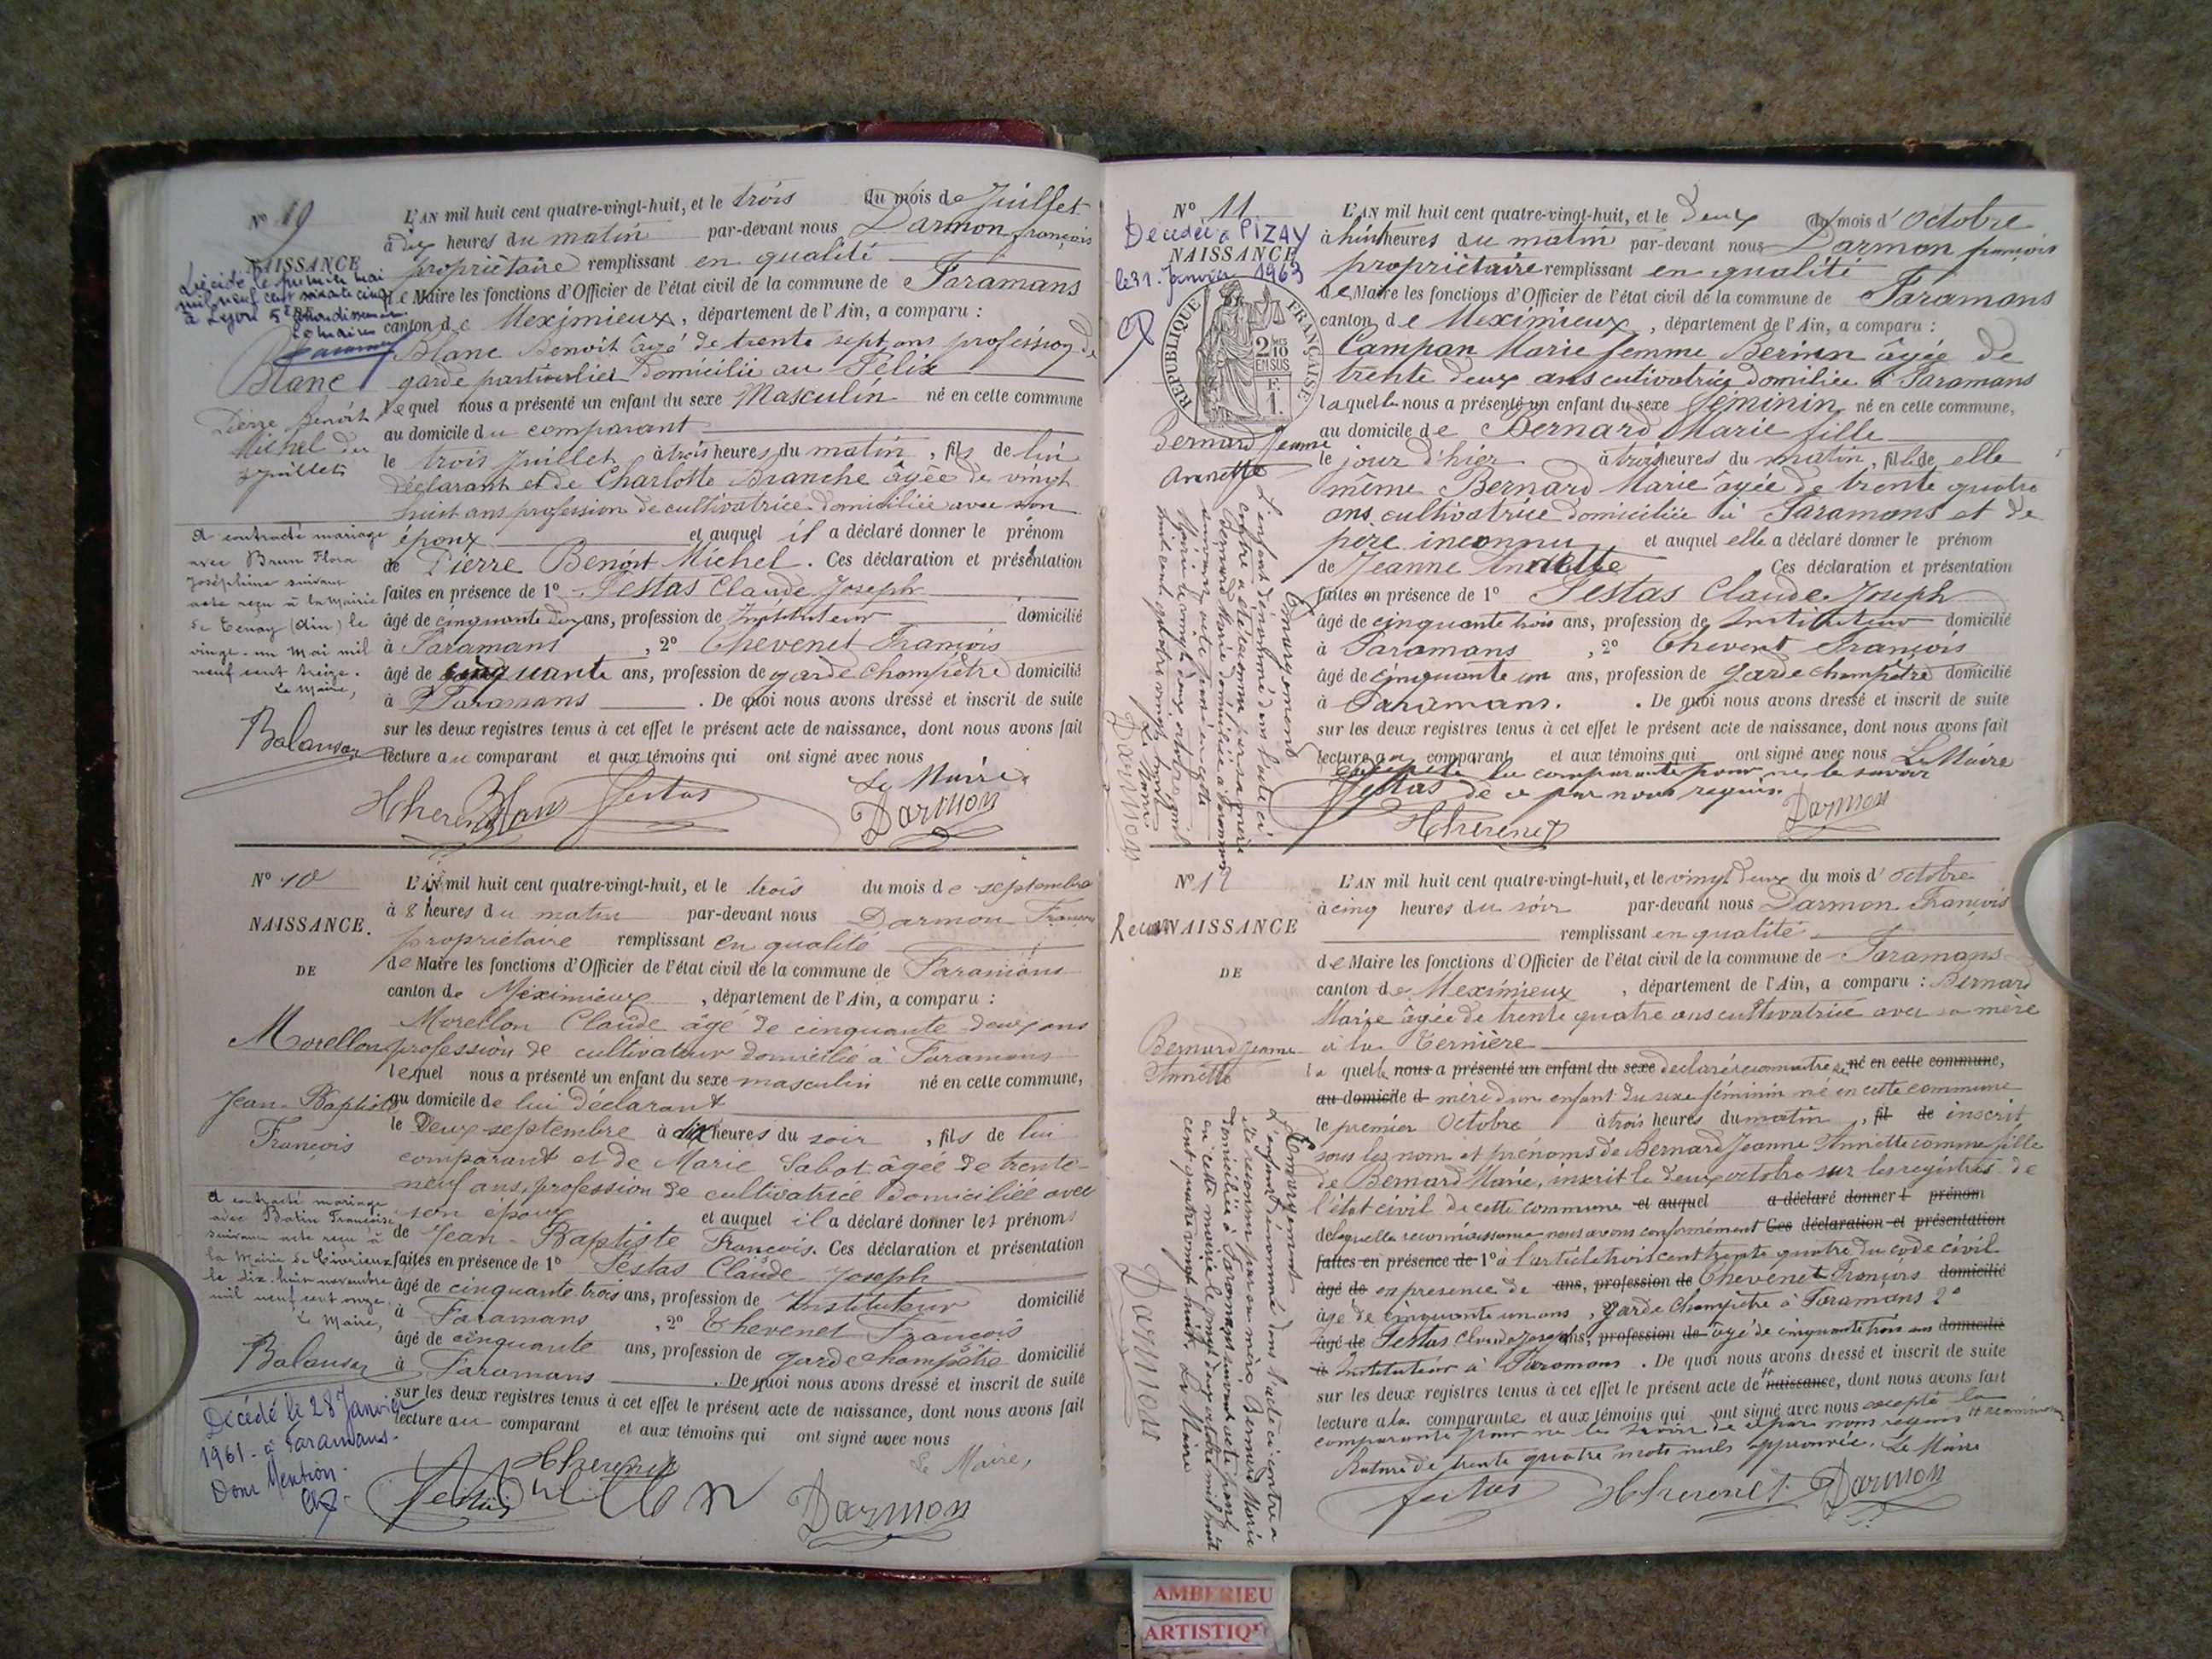 N° 9
NAISSANCE
Décédé le premier mai
mil neuf cent soixante cinq
à Lyon 5e Arrondissement
Le maire
Blanc
Pierre Benoît
Michel du
3 Juillet
A contracté mariage
avec Brun Flora
Joséphine suivant
acte reçu à la Mairie
de Tenay (Ain) le
vingt-un Mai mil
neuf cent treize.
Le Maire,
L'AN mil huit cent quatre-vingt-huit, et le trois du mois de Juillet
à dix heures du matin par-devant nous Darmon françois
propriétaire remplissant en qualité
de Maire les fonctions d'Officier de l'état civil de la commune de Faramans
canton de Meximieux, département de l'Ain, a comparu :
Blanc Benoit âgé de trente sept ans profession de
garde particulier domicilié au Félix
lequel nous a présenté un enfant du sexe Masculin né en cette commune
au domicile du comparant
le trois Juillet à trois heures du matin, fils de lui
déclarant et de Charlotte Branche âgée de vingt
huit ans profession de cultivatrice domiciliée avec son
époux et auquel il a déclaré donner le prénom
de Pierre Benoit Michel. Ces déclaration et présentation
faites en présence de 1° Festas Claude Joseph
âgé de cinquante deux ans, profession de Instituteur domicilié
à Faramans, 2° Chevenet François
âgé de cinquante ans, profession de garde champêtre domicilié
à Faramans. De quoi nous avons dressé et inscrit de suite
sur les deux registres tenus à cet effet le présent acte de naissance, dont nous avons fait
lecture au comparant et aux témoins qui ont signé avec nous
Le Maire
Chevenet Blanc Festas Darmon
N° 10
NAISSANCE.
DE
Morellon
Jean-Baptiste
François
A contracté mariage
avec Batin Françoise
suivant acte reçu à
la Mairie de Civrieux
le dix-huit novembre
mil neuf cent onze.
Le Maire,
Décédé le 28 Janvier
1961 - à Faramans.
Dont Mention.
L'AN mil huit cent quatre-vingt-huit, et le trois du mois de septembre
à 8 heures du matin par-devant nous Darmon François
propriétaire remplissant en qualité
de Maire les fonctions d'Officier de l'état civil de la commune de Faramans
canton de Meximieux, département de l'Ain, a comparu :
Morellon Claude âgé de cinquante deux ans
profession de cultivateur domicilié à Faramans
lequel nous a présenté un enfant du sexe masculin né en cette commune,
au domicile de lui déclarant
le Deux septembre à dix heures du soir, fils de lui
comparant et de Marie Sabot âgée de trente-
neuf ans, profession de cultivatrice domiciliée avec
son époux et auquel il a déclaré donner les prénoms
de Jean-Baptiste François. Ces déclaration et présentation
faites en présence de 1° Festas Claude Joseph
âgé de cinquante trois ans, profession de Instituteur domicilié
à Faramans, 2° Chevenet François
âgé de cinquante ans, profession de garde champêtre domicilié
à Faramans. De quoi nous avons dressé et inscrit de suite
sur les deux registres tenus à cet effet le présent acte de naissance, dont nous avons fait
lecture au comparant et aux témoins qui ont signé avec nous
Le Maire,
Chevenet
Festas Morellon Darmon
N° 11
Décédée à PIZAY
NAISSANCE
le 31 Janvier 1963
RÉPUBLIQUE FRANÇAISE
2 MES 10 EN SUS
F 1.
Bernard Jeanne
Annette
Emargement
L'enfant dénommé dans l'acte ci
contre a été reconnu par sa mère
Bernard Marie domiciliée à Faramans
suivant acte passé en cette
Mairie le vingt deux octobre mil
huit cent quatre vingt huit
Le Maire
Darmon
L'AN mil huit cent quatre-vingt-huit, et le Deux du mois d'Octobre
à huit heures du matin par-devant nous Darmon françois
propriétaire remplissant en qualité
de Maire les fonctions d'Officier de l'état civil de la commune de Faramans
canton de Meximieux, département de l'Ain, a comparu :
Campan Marie femme âgée de
trente deux ans cultivatrice domiciliée à Faramans
laquelle nous a présenté un enfant du sexe féminin né en cette commune,
au domicile de Bernard Marie fille
le jour d'hier à trois heures du matin, fille de elle
même Bernard Marie âgée de trente quatre
ans cultivatrice domiciliée à Faramans et de
père inconnu et auquel elle a déclaré donner le prénom
de Jeanne Annette Ces déclaration et présentation
faites en présence de 1° Festas Claude Joseph
âgé de cinquante trois ans, profession de Instituteur domicilié
à Faramans, 2° Chevenet François
âgé de cinquante un ans, profession de garde champêtre domicilié
à Faramans. De quoi nous avons dressé et inscrit de suite
sur les deux registres tenus à cet effet le présent acte de naissance, dont nous avons fait
lecture au comparant et aux témoins qui ont signé avec nous Le Maire
excepté la comparante pour ne le savoir
de ce par nous requis.
Festas Chevenet Darmon
N° 12
Recon NAISSANCE
DE
Bernard Jeanne
Annette
Emargement
L'enfant dénommé dans l'acte ci-contre a
été reconnu par sa mère Bernard Marie
domiciliée à Faramans suivant acte passé
en cette mairie le vingt deux octobre mil huit
cent quatre vingt huit. Le Maire
Darmon
L'AN mil huit cent quatre-vingt-huit, et le vingt deux du mois d'Octobre
à cinq heures du soir par-devant nous Darmon François
remplissant en qualité
de Maire les fonctions d'Officier de l'état civil de la commune de Faramans
canton de Meximieux, département de l'Ain, a comparu : Bernard
Marie âgée de trente quatre ans cultivatrice avec sa mère
à la Ternière
laquelle nous a présenté un enfant du sexe déclaré reconnaître né en cette commune,
au domicile d mère d'un enfant du sexe féminin né en cette commune
le premier Octobre à trois heures du matin, fil de inscrit
sous les nom et prénoms de Bernard Jeanne Annette comme fille
de Bernard Marie, inscrit le deux octobre sur les registres de
l'état civil de cette commune et auquel a déclaré donner l prénom
de laquelle reconnaissance nous avons conformément Ces déclaration et présentation
faites en présence de 1° à l'article trois cent trente quatre du code civil
âgé de en présence de ans, profession de Chevenet François domicilié
âgé de cinquante un ans, garde champêtre à Faramans 2°
âgé de Festas Claude Joseph ans, profession de âgé de cinquante trois ans domicilié
à Instituteur à Faramans. De quoi nous avons dressé et inscrit de suite
sur les deux registres tenus à cet effet le présent acte de naissance, dont nous avons fait
lecture à la comparante et aux témoins qui ont signé avec nous excepté la
comparante pour ne le savoir de ce par nous requis
Rature de trente quatre mots nuls approuvée. Le Maire
Festas Chevenet Darmon
AMBERIEU
ARTISTIQ